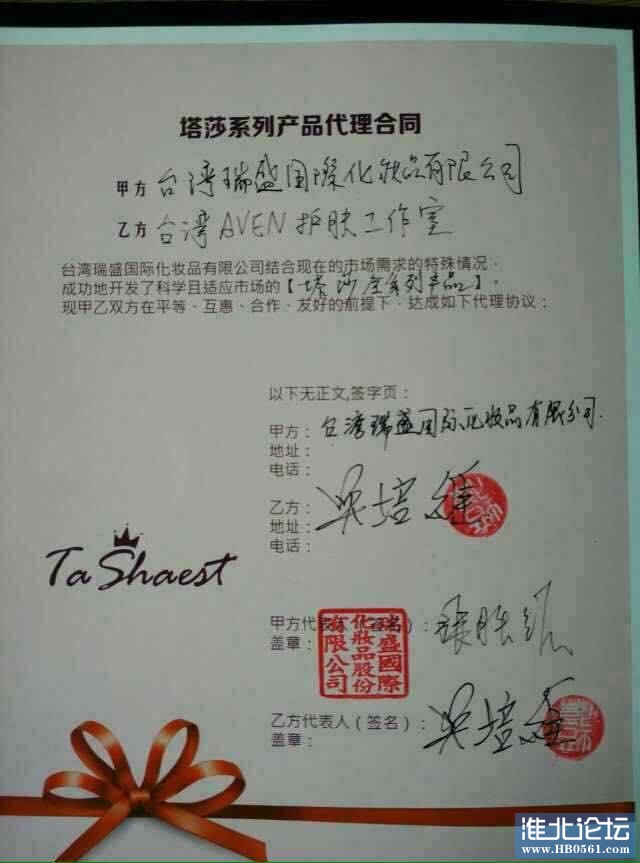 塔莎系列产品代理合同
甲方 台湾瑞盛国際化妝品有限公司
乙方 台湾 AVEN 护肤工作室
台湾瑞盛国际化妆品有限公司结合现在的市场需求的特殊情况，
成功地开发了科学且适应市场的【塔莎全系列产品】。
现甲乙双方在平等、互惠、合作、友好的前提下，达成如下代理协议：
以下无正文,签字页：
甲方：台湾瑞盛国际化妆品有限公司.
地址：
电话：
乙方：吴培
地址：
电话：
TaShaest
甲方代表人（签名）：
盖章：
瑞盛國際
化妝品股份
有限公司
乙方代表人（签名）：吴培
盖章：
淮北论坛
www.HB0561.com